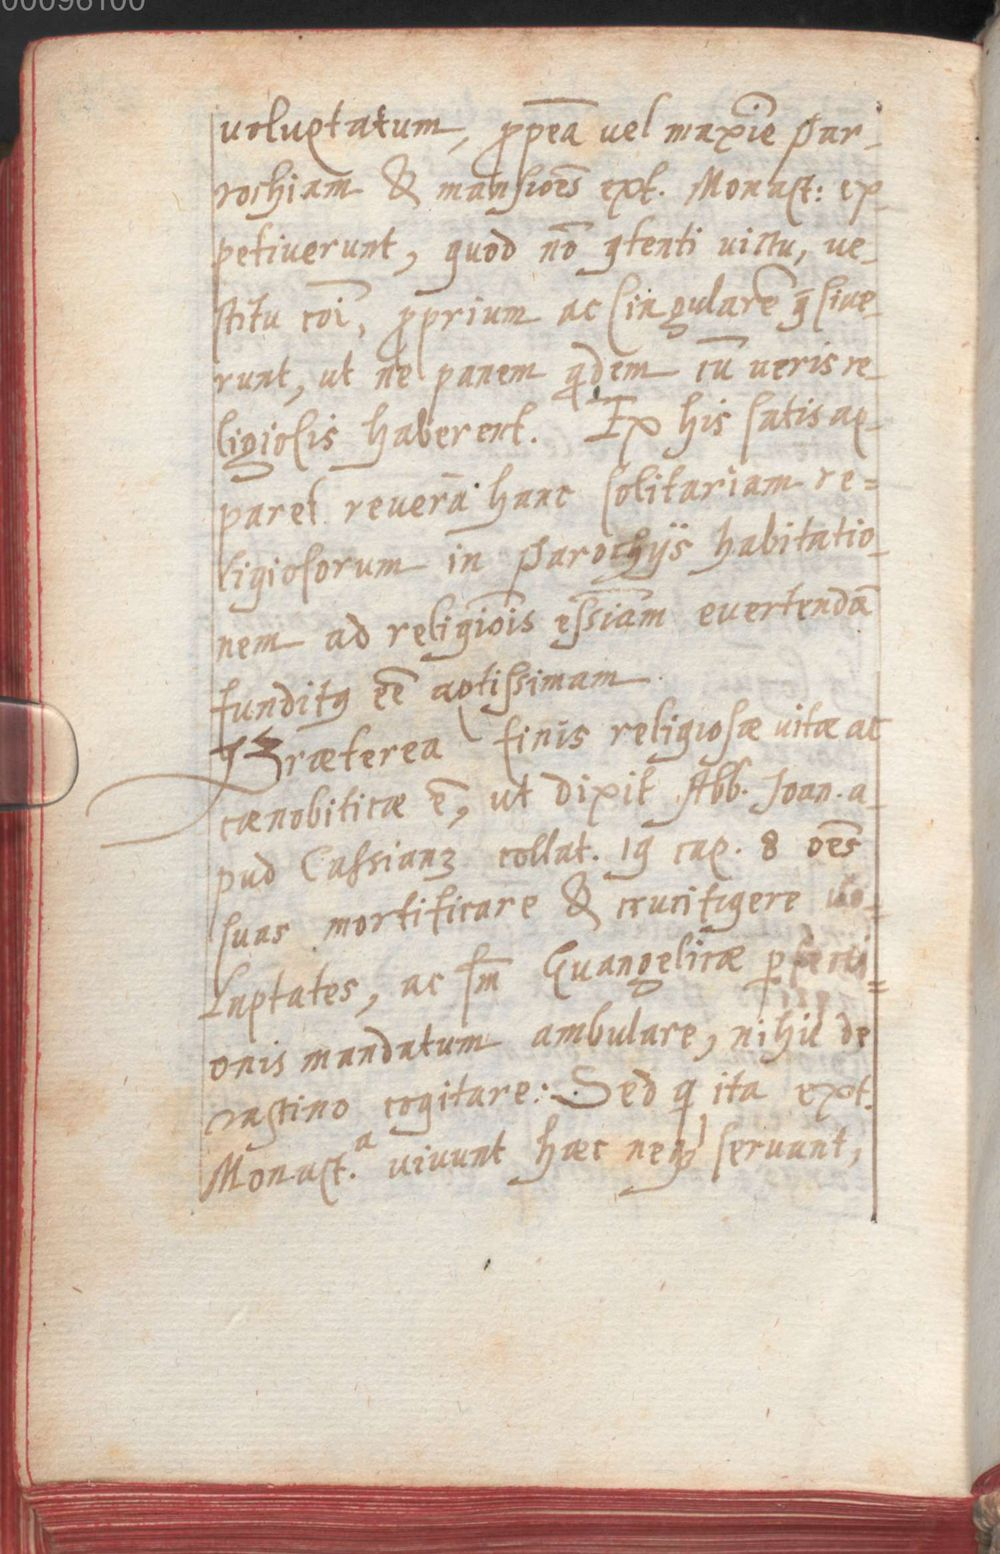 00096100
voluptatum, ꝓpea᷉ vel maxie᷉ par-
rochiam & mansioēs ext. Monast: ex-
petiverunt, quod nō ꝯtenti victu, ve-
stitu coī, ꝓprium ac singularē q̄sive-
runt, ut ne panem qdem cū veris re-
ligiosis haberent. Ex his satis ap-
paret reverā hanc solitariam re=
ligiosorum in parochijs habitatio-
nem ad religiōis essiam̄ evertendā
funditꝰ eē aptissimam.
Præterea finis religiosæ vitæ ac
cænobiticæ ē, ut dixit Abb. Joan. a-
pud Cassianꝫ collat. 19 cap. 8 oēs
suas mortificare & crucifigere vo-
luptates, ac sm̄ Euangelicæ ꝑfecti=
onis mandatum ambulare, nihil de
crastino cogitare: Sed q ita ext.
Monast.a vivunt hæc neqꝫ servant,